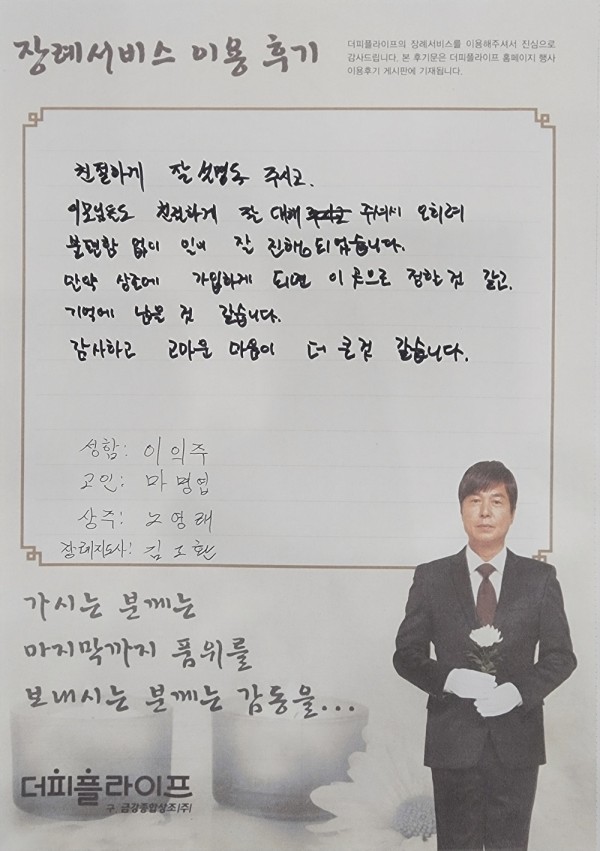 장례서비스 이용 후기
더피플라이프의 장례서비스를 이용해주셔서 진심으로
감사드립니다. 본 후기문은 더피플라이프 홈페이지 행사
이용후기 게시판에 기재됩니다.
친절하게 잘 설명도 주시고.
이모님들도 친절하게 잘 대해 주셔서 오히려
불편함 없이 일이 잘 진행 되었습니다.
만약 상조에 가입하게 되면 이 곳으로 정할 것 같고.
기억에 남을 것 같습니다.
감사하고 고마운 마음이 더 큰것 같습니다.
성함: 이익주
고인: 마명엽
상주: 노영래
장례지도사: 김
가시는 분께는
마지막까지 품위를
보내시는 분께는 감동을...
더피플라이프
구. 금강종합상조(주)